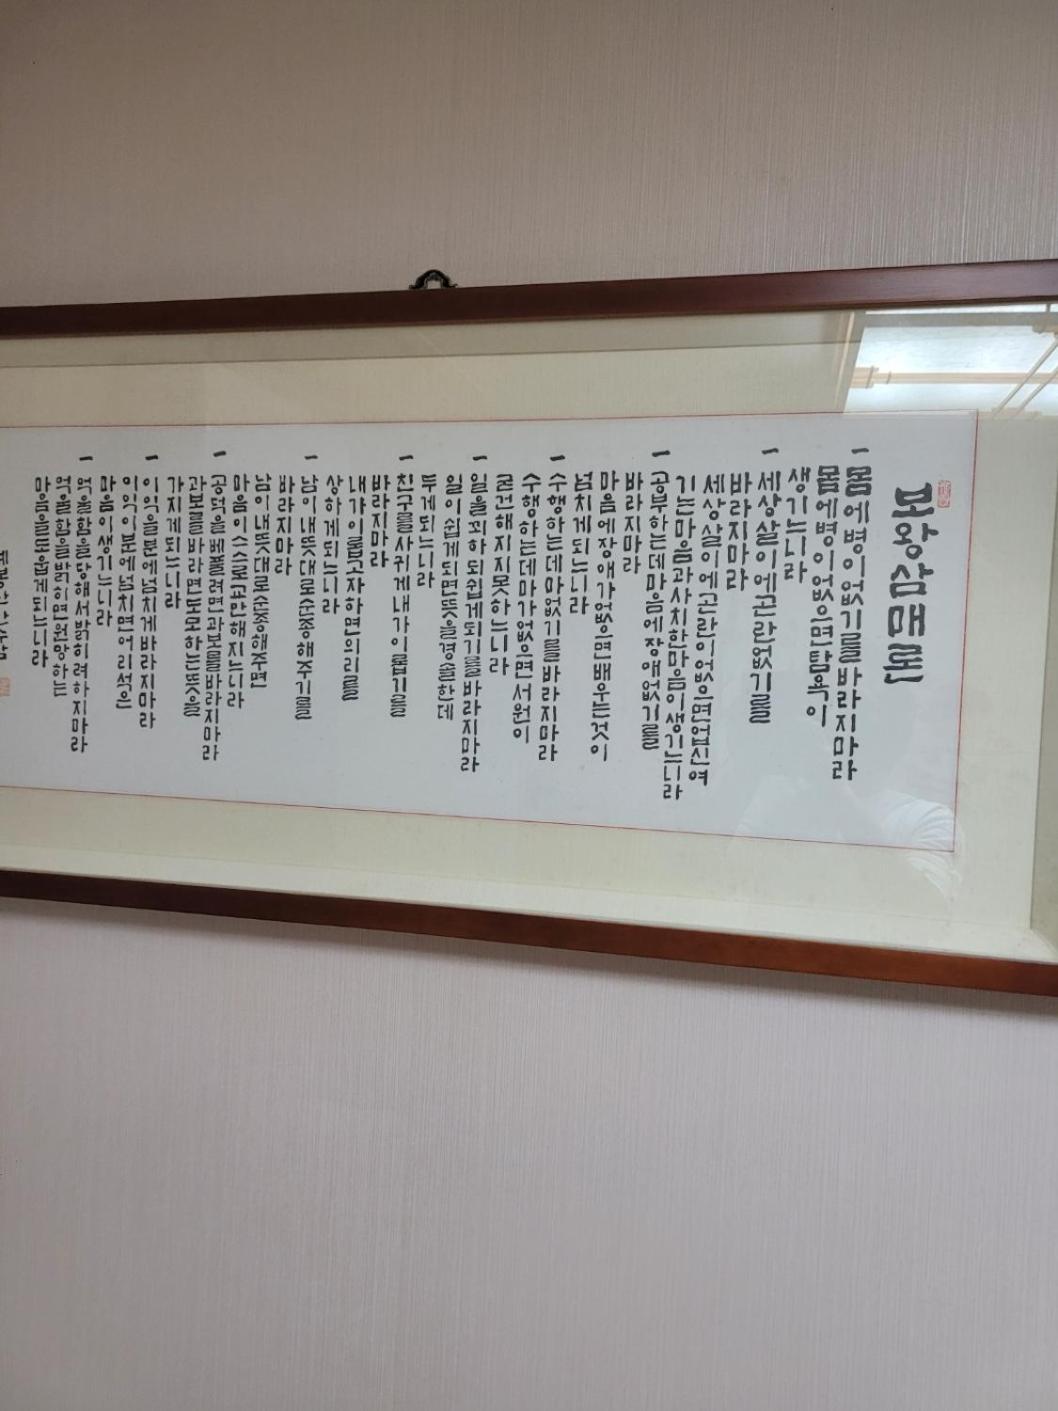 보왕삼매론
一 몸에병이없기를바라지마라
몸에병이없으면탐욕이
생기느니라
一 세상살이에곤란없기를
바라지마라
세상살이에곤란이없으면업신여
기는마음과사치한마음이생기느니라
一 공부하는데마음에장애없기를
바라지마라
마음에장애가없으면배우는것이
넘치게되느니라
一 수행하는데마없기를바라지마라
수행하는데마가없으면서원이
굳건해지지못하느니라
一 일을꾀하되쉽게되기를바라지마라
일이쉽게되면뜻을경솔한데
두게되느니라
一 친구를사귀게내가이롭기를
바라지마라
내가이롭고자하면의리를
상하게되느니라
一 남이내뜻대로순종해주기를
바라지마라
남이내뜻대로순종해주면
마음이스스로교만해지느니라
一 공덕을베풀려면과보를바라지마라
과보를바라면도모하는뜻을
가지게되느니라
一 이익을분에넘치게바라지마라
이익이분에넘치면어리석은
마음이생기느니라
一 억울함을당해서밝히려하지마라
억울함을밝히면원망하는
마음을도웁게되느니라